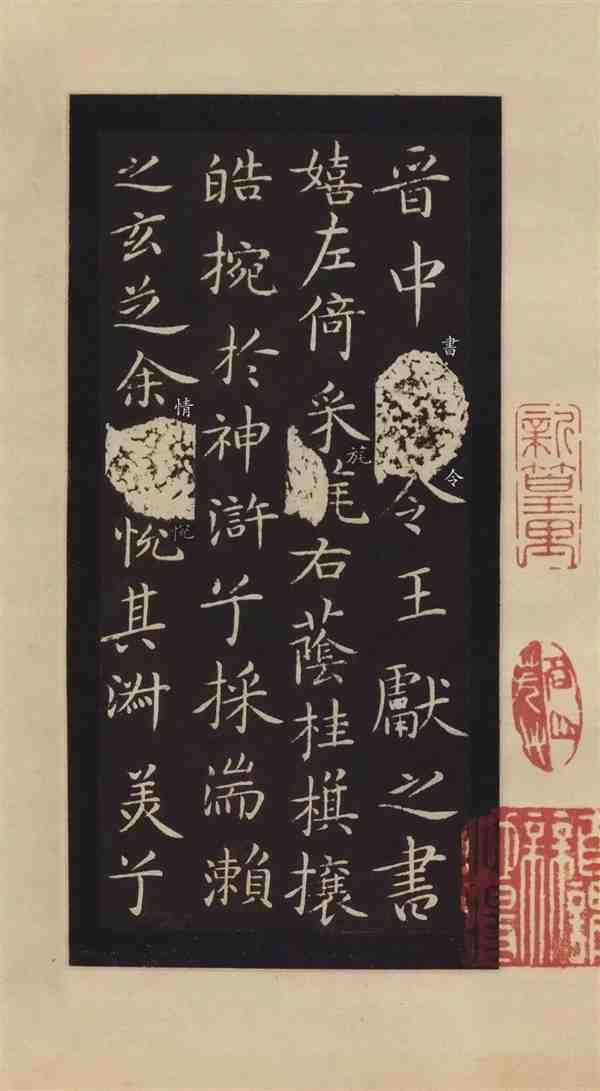 晉中令王獻之書
書
令
嬉左倚采旄右蔭桂旗攘
旄
皓捥於神滸兮採湍瀨
之玄芝余悅其淵美兮
情
悅